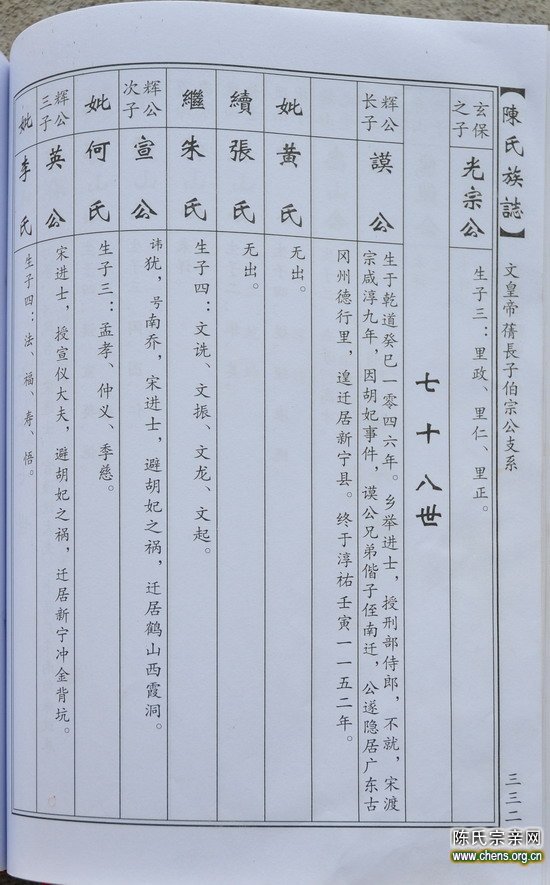 【陳氏族誌】
文皇帝蒨長子伯宗公支系
三三二
玄保之子
光宗公
生子三：里政、里仁、里正。
七十八世
辉公长子
謨公
生于乾道癸巳一零四六年。乡举进士，授刑部侍郎，不就，宋渡
宗咸淳九年，因胡妃事件，谟公兄弟偕子侄南迁，公遂隐居广东古
冈州德行里，遑迁居新宁县。终于淳祐壬寅一一五二年。
妣黄氏
无出。
續張氏
无出。
繼朱氏
生子四：文诜、文振、文龙、文起。
辉公次子
宣公
讳犹，号南乔，宋进士，避胡妃之祸，迁居鹤山西霞洞。
妣何氏
生子三：孟孝、仲义、季慈。
辉公三子
英公
宋进士，授宣仪大夫，避胡妃之祸，迁居新宁冲金背坑。
妣李氏
生子四：法、福、寿、悟。
陈氏宗亲网
www.chens.org.cn